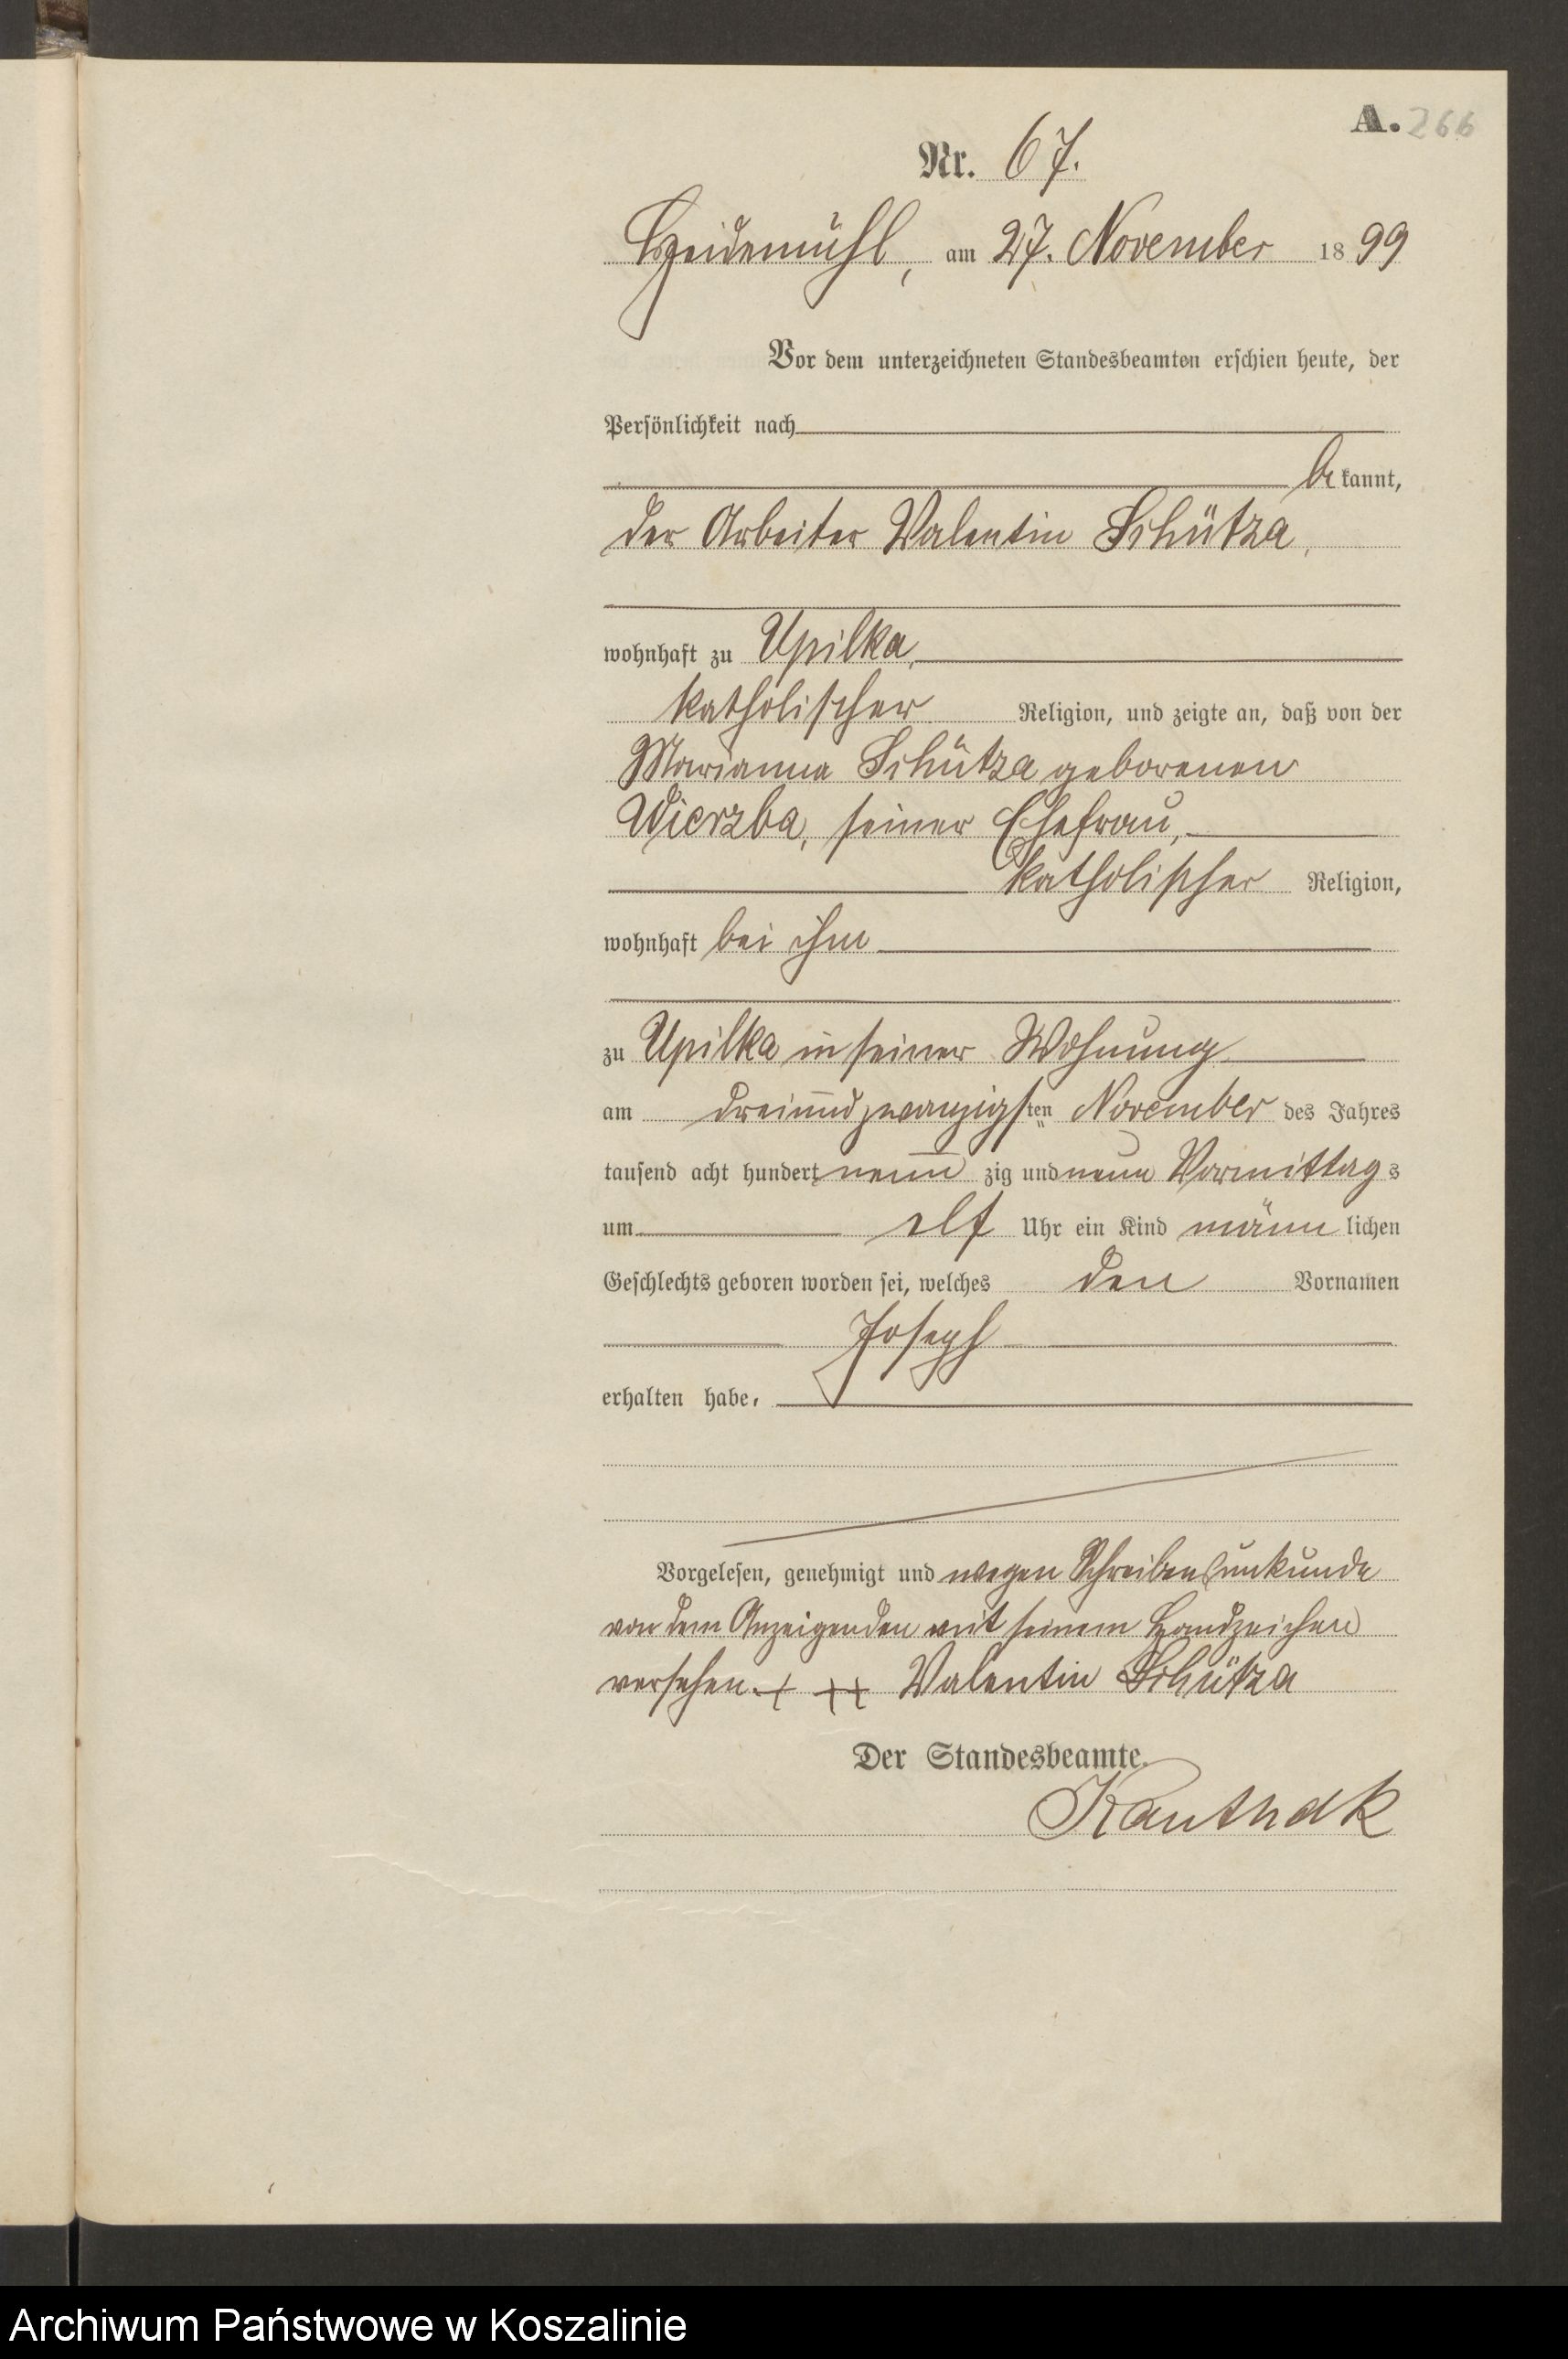 A. 266
Nr. 67.
Heidemühl, am 27. November 1899
Vor dem unterzeichneten Standesbeamten erschien heute, der
Persönlichkeit nach
bekannt,
der Arbeiter Valentin Schütza,
wohnhaft zu Upilka,
katholischer Religion, und zeigte an, daß von der
Marianna Schütza geborenen
Wierzba, seiner Ehefrau,
katholischer Religion,
wohnhaft bei ihm
zu Upilka in seiner Wohnung
am dreiundzwanzigsten November des Jahres
tausend acht hundert neunzig und neun Vormittags
um elf Uhr ein Kind männlichen
Geschlechts geboren worden sei, welches den Vornamen
Joseph
erhalten habe.
Vorgelesen, genehmigt und wegen Schreibensunkunde
von dem Anzeigenden mit seinem Handzeichen
versehen. + ++ Valentin Schütza
Der Standesbeamte.
Archiwum Państwowe w Koszalinie